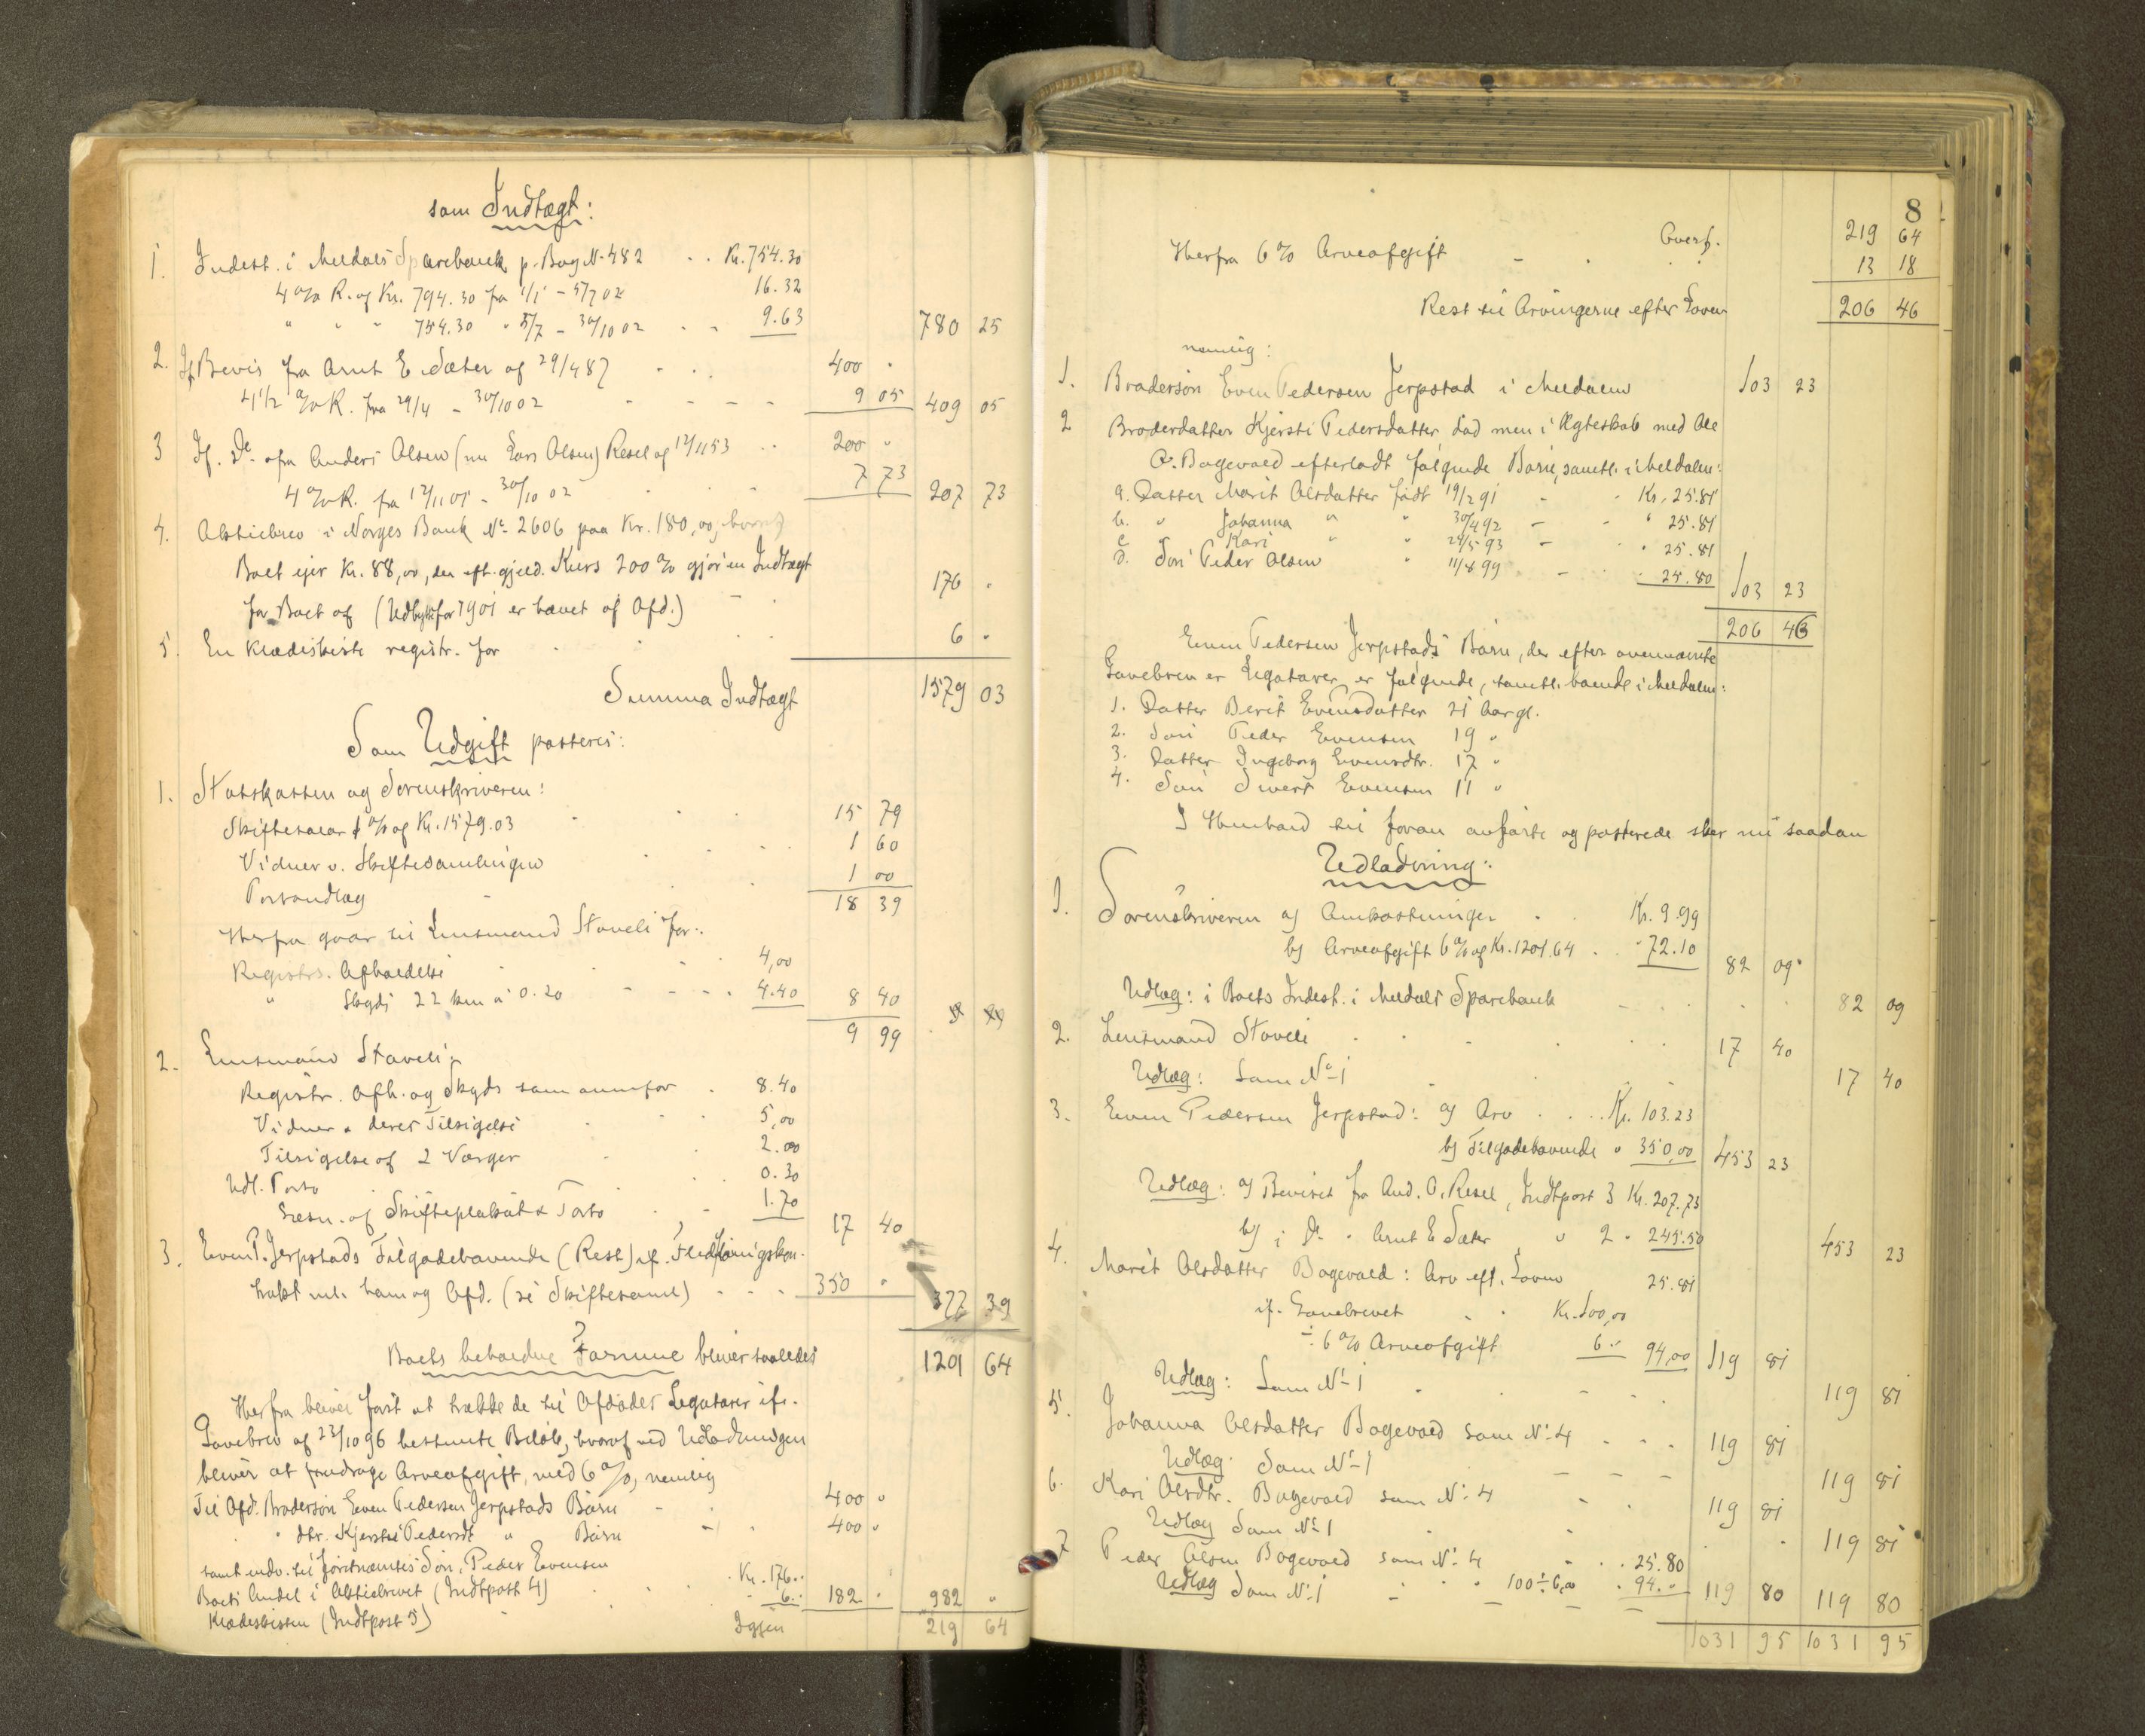 som Indtægt:
1. Indest. i Meldals Sparebank p. Bog No 482 . . Kr. 754.30
4 % R. af Kr. 794.30 fra 1/1 - 5/7 02 16.32
" " " 754.30 " 5/7 - 30/10 02 . . 9.63 780 25
2. If. Bevis fra Arnt E. Sæter af 29/4 87 . . 400 "
4 1/2 % R. fra 29/4 - 30/10 02 - - - - 9 05 409 05
3 If. Do. fra Anders Olsen (nu Lars Olsen) Resel af 12/11 53 . . 200 "
4 % R. fra 12/11 01 - 30/10 02 7 73 207 73
4. Aktiebrev i Norges Bank No 2606 paa Kr. 180,00, hvoraf
Boet ejer Kr. 88,00, der eft. gjeld. Kurs 200 % gjør en Indtægt
for Boet af (Udbytte for 1901 er hævet af Afd.) - . 176 "
5. En Klædeskiste registr. for . . . 6 "
Summa Indtægt 1579 03
Som Udgift posteres:
1. Statskassen og Sorenskriveren:
Skiftesalær 1 % af Kr. 1579.03 15 79
Vidner v. Skiftesamlingen 1 60
Portoudlæg 1 00
18 39
Herfra gaar til Lensmand Staveli for:
Registrs. Afholdelse 4,00
" Skyds 22 km a 0.20 - - - 4.40 8 40
9 99
2. Lensmand Staveli:
Registr. Afh. og Skyds som ovenfor . 8.40
Vidner & deres Tilsigelse 5,00
Tilsigelse af 2 Værger 2.00
Udl. Porto 0.30
Læsn. af Skifteplakat & Porto 1.70 17 40
3. Even P. Jerpstads Tilgodehavende (Rest) if. Flødføringskon-
trakt ml. ham og Afd. (se Skiftesaml) - - - 350 " 377 39
Boets beholdne Formue bliver saaledes 1201 64
Herfra bliver først at trække de til Afdødes Legatarer if.
Gavebrev af 23/10 96 bestemte Beløb, hvoraf ved Udlodningen
bliver at fradrage Arveafgift, med 6 %, nemlig
Til Afd. Brodersøn Even Pedersen Jerpstads Børn - 400 "
" dtr. Kjersti Pedersdt " Børn 400 "
samt indv. til førstnævntes Søn, Peder Evensen
Boets Andel i Aktiebrevet (Indtpost 4) . Kr. 176 . .
Klædeskisten (Indtpost 5) - 6 . . 182 " 982 "
Igjen 219 64
8
Overf. 219 64
Herfra 6 % Arveafgift - . . 13 18
Rest til Arvingerne efter Loven 206 46
nemlig:
1. Brodersøn Even Pedersen Jerpstad i Meldalen 103 23
2 Broderdatter Kjersti Pedersdatter, død men i Ægteskab med Ole
O. Bogevold efterladt følgende Børn, samtl. i Meldalen:
a. Datter Marit Olsdatter født 19/2 91 - . Kr. 25.81
b. " Johanna " " 30/4 92 - - " 25.81
c " Kari " " 24/5 93 - . " 25.81
d. Søn Peder Olsen " 11/8 99 - 25.80 103 23
206 46
Even Pedersen Jerpstads Børn, der efter ovennævnte
Gavebrev er Legatarer, er følgende, samtl. boende i Meldalen:
1. Datter Berit Evensdatter 21 Aar gl.
2. Søn Peder Evensen 19 "
3. Datter Ingeborg Evensdtr. 17 "
4. Søn Sivert Evensen 11 "
I Henhold til foran anførte og posterede sker nu saadan
Udlodning:
1. Sorenskriveren a) Omkostninger . . Kr. 9.99
b) Arveafgift 6 % af Kr. 1201.64 . . " 72.10 82 09
Udlæg: i Boets Indest. i Meldals Sparebank - . . 82 09
2. Lensmand Staveli . . . . 17 40
Udlæg: Som No 1 17 40
3. Even Pedersen Jerpstad: a) Arv . . . Kr. 103.23
b) Tilgodehavende " 350,00 453 23
Udlæg: a) Beviset fra And. O. Resel, Indtpost 3 Kr. 207.73
b) i Do. " Arnt E. Sæter, " 2 " 245.50 453 23
4. Marit Olsdatter Bogevold: Arv eft. Loven 25.81
if. Gavebrevet . . Kr. 100,00
÷ 6 % Arveafgift 6 . . 94,00 119 81
Udlæg: Som No 1 . - . 119 81
5. Johanna Olsdatter Bogevold som No 4 - . . 119 81
Udlæg. Som No 1 - - - 119 81
6. Kari Olsdtr. Bogevold som No 4 - . 119 81
Udlæg Som No 1 . . . 119 81
7 Peder Olsen Bogevold som No 4 . . . 25.80
100 ÷ 6,00 . 94 . " 119 80
Udlæg Som No 1 - - - 119 80
1031 95 1031 95